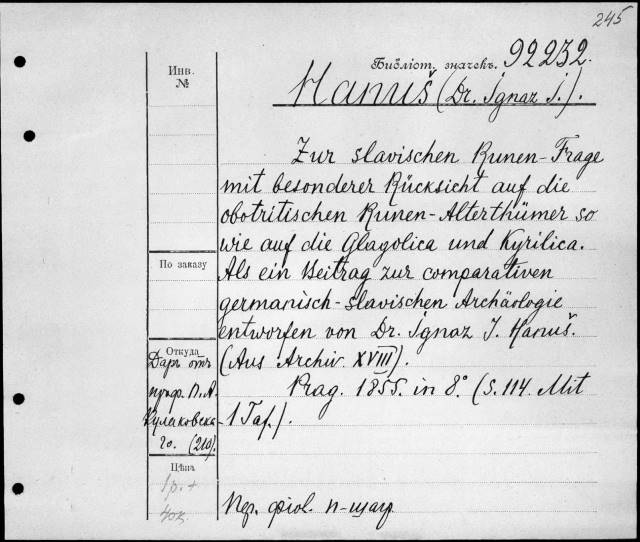 245
Инв.
№
Библіот. значекъ. 92232.
Hanuš (Dr. Ignaz J.).
Zur slavischen Runen-Frage
mit besonderer Rücksicht auf die
obotritischen Runen-Alterthümer so
wie auf die Glagolica und Kyrilica.
Als ein Beitrag zur comparativen
germanisch-slavischen Archäologie
entworfen von Dr. Ignaz J. Hanuš.
(Aus Archiv XVIII).
Prag. 1855. in 8° (S. 114. Mit
1 Taf.).
По заказу
Откуда
Даръ отъ
проф. П. А.
Кулаковска-
го. (210).
Цѣна
1р. +
40к.
Пер. фіол. п-шагр